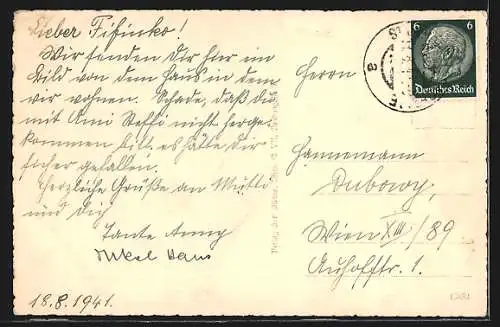 Lieber Fifinko!
Wir senden Dir hier im
Bild von dem Haus in dem
wir wohnen. Schade, daß du
mit Ami Steffi nicht herge-
kommen bist, es hätte dir
sicher gefallen.
Herzliche Grüße an Mutti
und dich
Tante Anny
Onkel Hans
18.8.1941.
Herrn
Hannemann
Dubowy,
Wien XIII/89
Auhofstr. 1.
6 6
Deutsches Reich